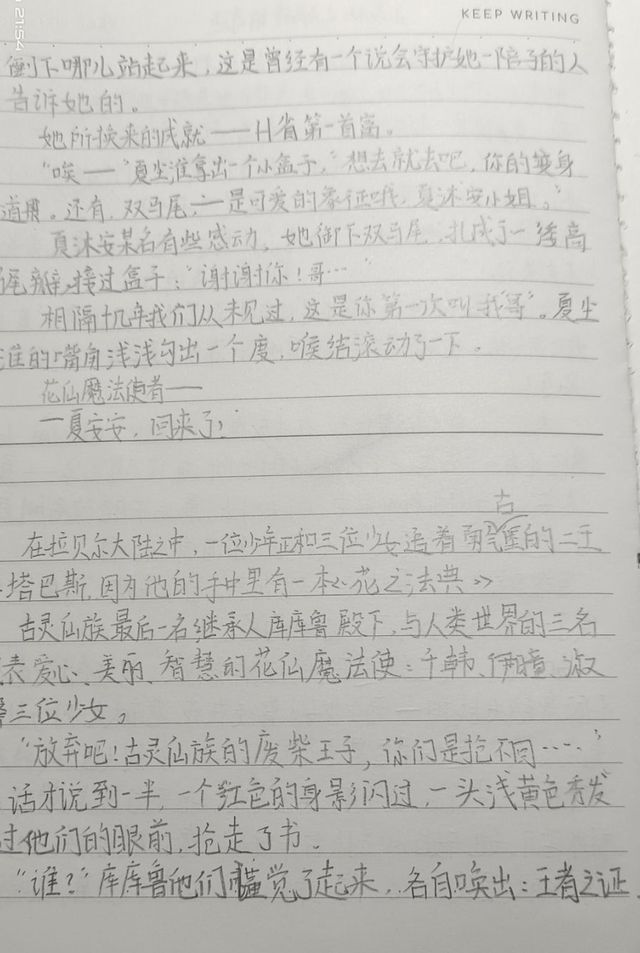 21:54
KEEP WRITING
倒下哪儿站起来，这是曾经有一个说会守护她一陪子的人
告诉她的。
她所换来的成就——H省第一首富。
“唉——”夏尘淮拿出一个小盒子，“想去就去吧，你的变身
道具。还有，双马尾，——是可爱的象征哦，夏沐安小姐。”
夏沐安某名有些感动，她御下双马尾，扎成了一缕高
尾辫，接过盒子：“谢谢你！哥…”
相隔十几年我们从未见过，这是你第一次叫我“哥”。夏尘
淮的嘴角浅浅勾出一个度，喉结滚动了一下。
花仙魔法使者——
一夏安安，回来了！
古
在拉贝尔大陆之中，一位少年正和三位少女追着的二王
塔巴斯，因为他的手中里有一本《花之法典》
古灵仙族最后一名继承人库库鲁殿下，与人类世界的三名
表爱心、美丽、智慧的花仙魔法使：千韩、伊瞳、淑
三位少女。
“放弃吧！古灵仙族的废柴王子，你们是抢不回……”
话才说到一半，一个红色的身影闪过，一头浅黄色秀发
过他们的眼前，抢走了书。
“谁？”库库鲁他们警觉了起来，各自唤出：王者之证